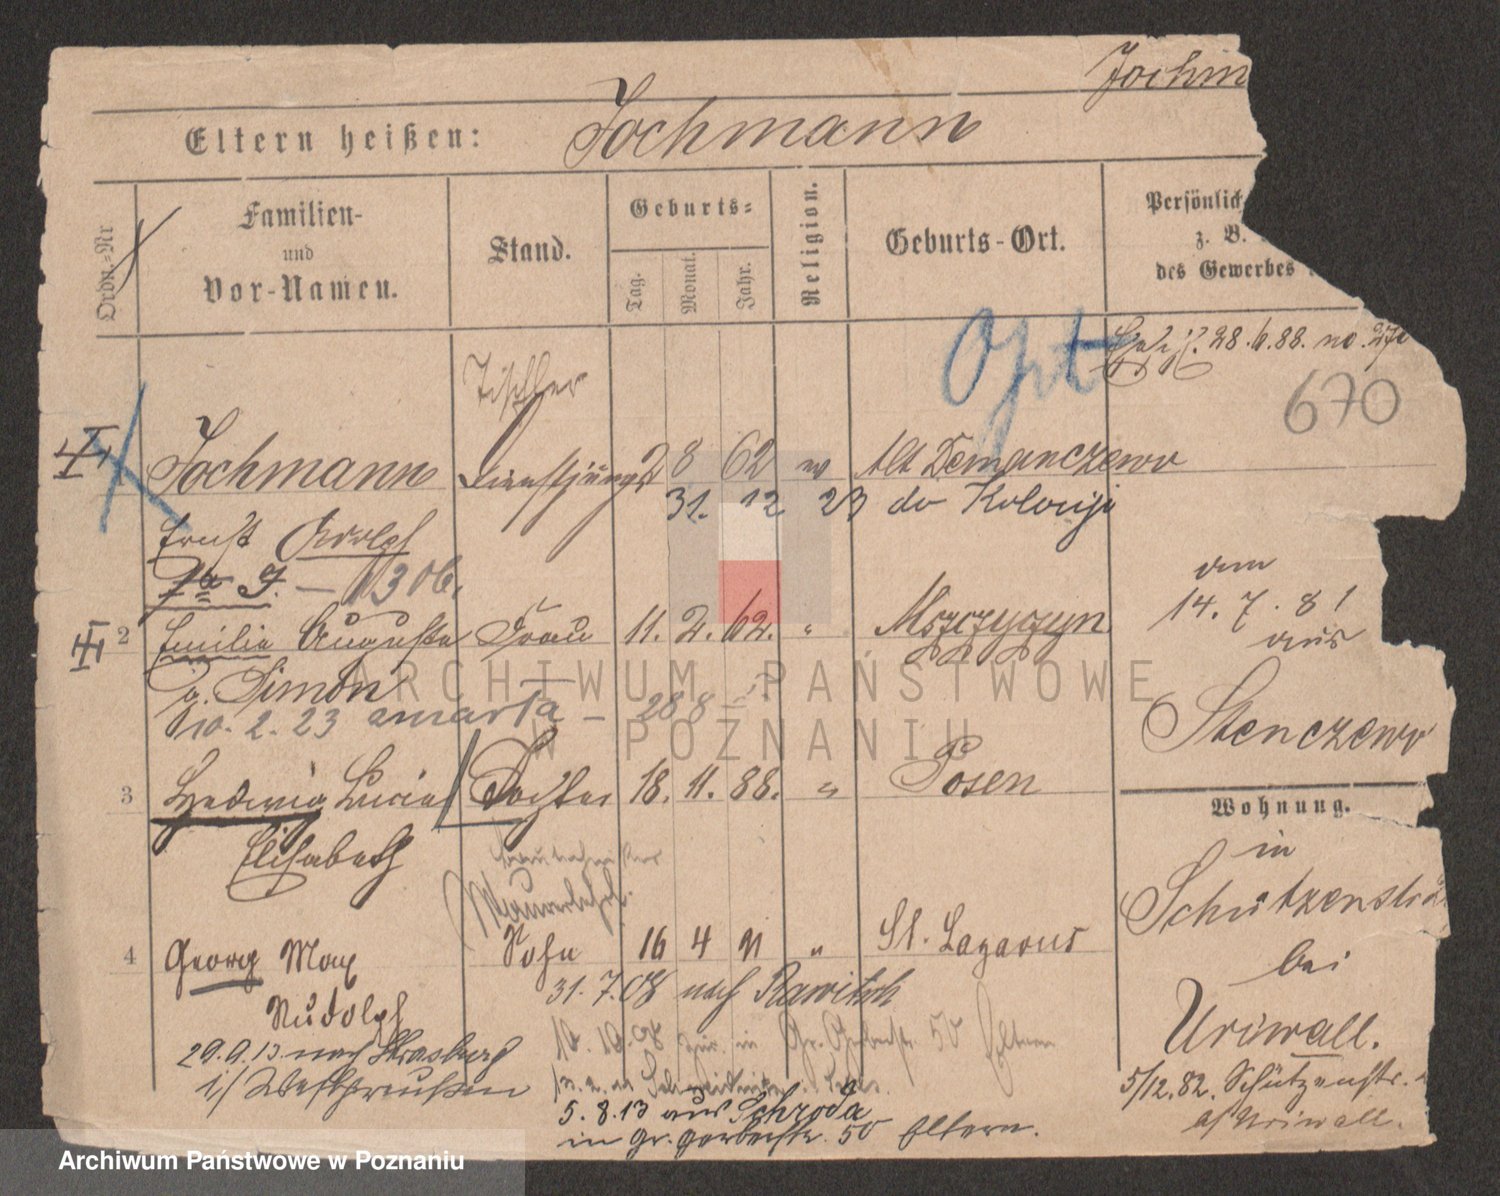 Jochm
Eltern heißen: Jochmann
Ordn.-Nr
Familien-
und
Vor-Namen.
Stand.
Geburts-
Tag.
Monat.
Jahr.
Religion.
Geburts-Ort.
Persönlich
z. B.
des Gewerbes
28.6.88. no.
Opt
670
Tischler
Jochmann Dienstjunge 2 8 62 Alt Demanczewo
31. 12 23 do Kolonji
Ernst Adolph
1306.
vom
14. 7. 81
aus
Stenczewo
2 Emilie Auguste Frau 11. 2. 62. " Mszczyczyn
g. Simon
10. 2. 23 umarła – 28 8
3 Hedwig Lucie Tochter 18. 11. 88. " Posen
Elisabeth
Wohnung.
in
Schützenstr
bei
Uriwall.
5/12.82. Schützenstr.
b/Uriwall.
Maurerlehrl.
4 Georg Max Sohn 16 4 91 " St. Lazarus
Rudolph
31. 7. 08 nach Rawitsch
10. 10. 08 zur. in Gr. Gerberstr. 50 Eltern
29.9.13. nach Strasburg
i/ Westpreußen
5. 8. 13 aus Schroda
in Gr. Gerberstr. 50 Eltern.
ARCHIWUM PAŃSTWOWE
W POZNANIU
Archiwum Państwowe w Poznaniu